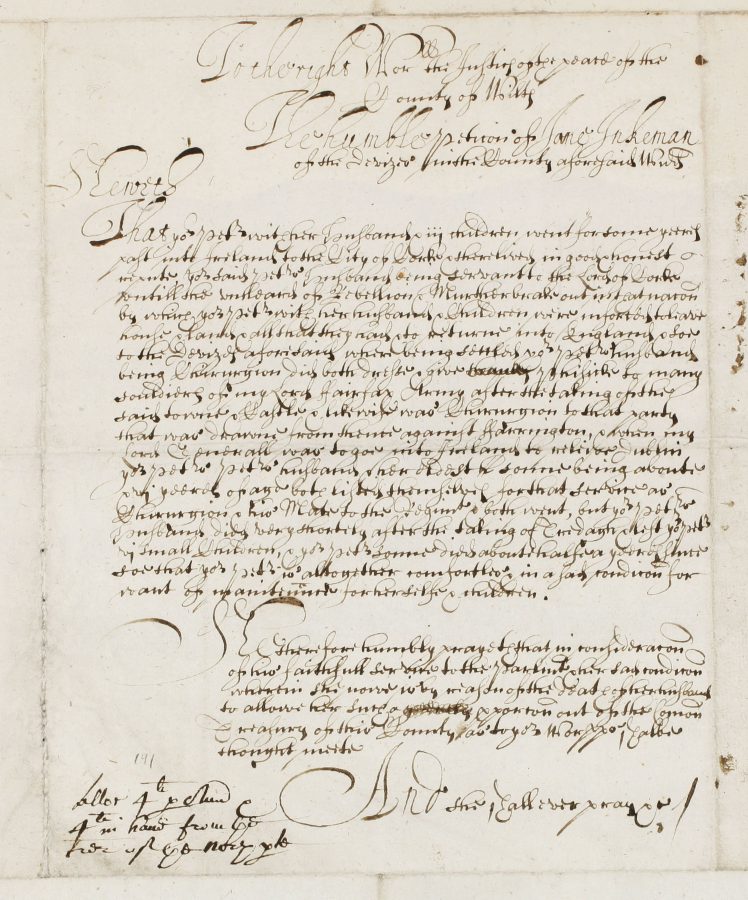 To the right Wor:ll the Justices of the peace of the
County of Wilts
The humble peticion of Jane Inkeman
of the Devizes in the County aforesaid Widd
Sheweth
That yor Petr with her Husband & iiij children went for some yeeres
past into Ireland to the City of Corke & there lived in good & honest
repute yor said Petrs Husband being servant to the Lord of Corke
untill the unheard of Rebellion & Murther brake out in that nacon
by which yor Petr with her husband & Children were inforced to leave
house & land & all that they had & to returne into England & soe
to the Devizes aforesaid where being settled yor Petrs husband
being Chirurgion did both dresse & give phisicke to many
souldiers of my Lord Fairfax Army after the taking of the
said towne & Castle & likewise was Chirurgion to that party
that was drawne from thence against Farrington, & when my
Lord Generall was to goe into Ireland to relieve Dublin
yor Petrs Petrs husband & her eldest sonne being aboute
xvj yeeres of age both listed themselves for that service as
Chirurgion & his Mate to the Regimt & both went, but yor Petrs
Husband died very shortely after the taking of Tredagh & left yor Petr
vj small Children, & yor Petrs sonne died about halfe a yeere since
soe that yor Petr is altogether comfortles & in a sad condicon for
want of maintennce for herselfe & children.
She therefore humbly prayeth that in consideracon
of his faithfull service to the Parliamt & her sad condicon
wherein she nowe is by reason of the death of her husband
to allowe her such a porcon out of the Comon
Treasury of this County, as to yor Worpps shalbe
thought meete
And she shall ever pray &c
191
4li in hand from the